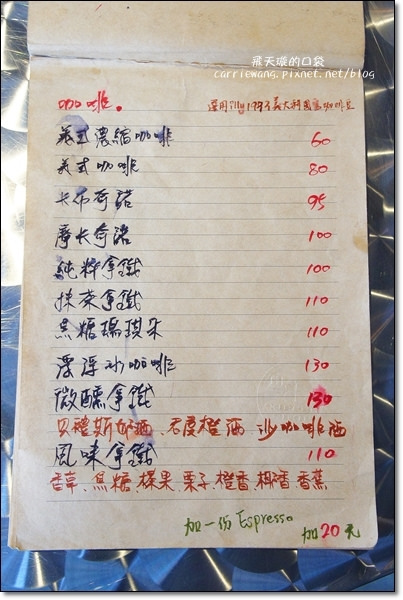 飛天璇的口袋
carriewang.pixnet.net/blog
咖啡。 選用illy 1933義大利國寶咖啡豆
義式濃縮咖啡 60
義式咖啡 80
卡布奇諾 95
摩卡奇諾 100
純粹拿鐵 100
抹茶拿鐵 110
焦糖瑪琪朵 110
漂浮冰咖啡 130
微醺拿鐵 130
貝禮斯奶酒、君度橙酒、咖啡酒
風味拿鐵 110
香草、焦糖、榛果、栗子、橙香、椰香、香蕉
加一份 Espresso 加20元